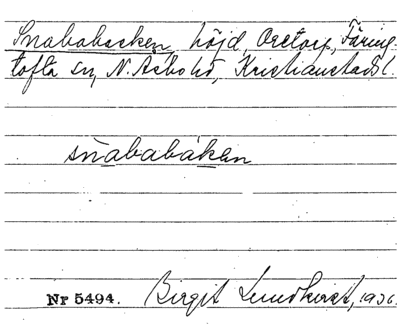 Snababacken, höjd, Oretorp, Färing-
tofta sn, N. Åsbo hd, Kristianstads l.
snababákən
Nr 5494. Birgit Lundkvist, 1936.